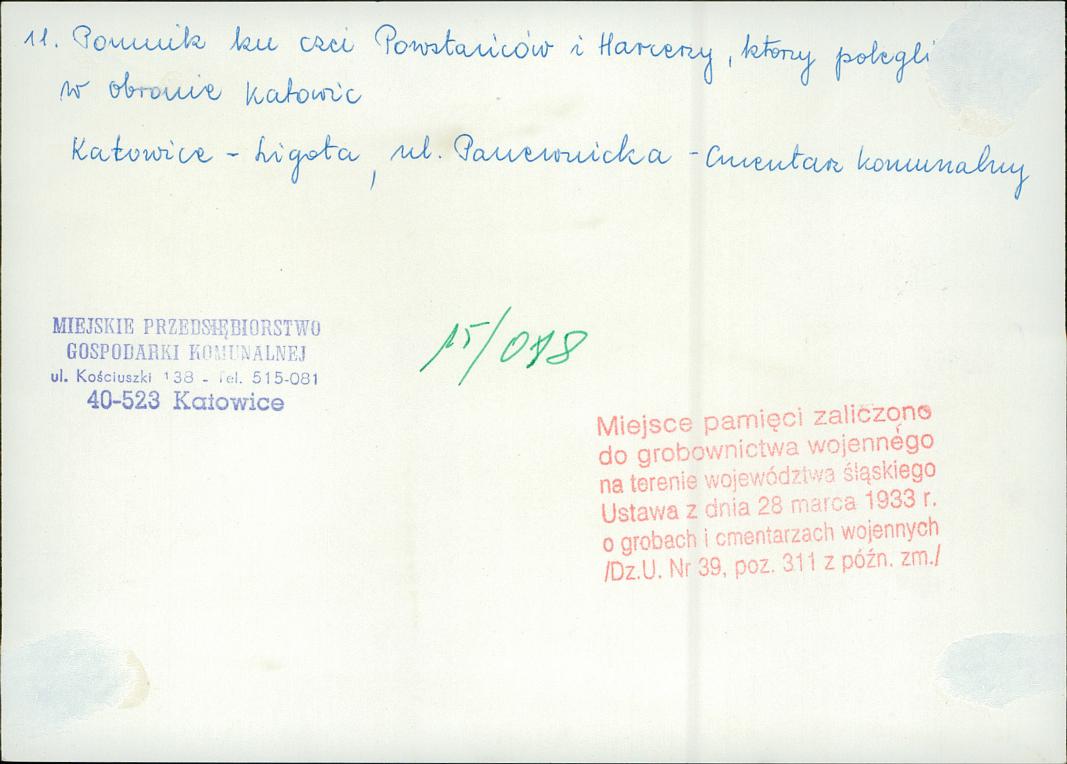 11. Pomnik ku czci Powstańców i Harcerzy, którzy polegli
w obronie Katowic
Katowice - Ligota, ul. Panewnicka - Cmentarz komunalny
MIEJSKIE PRZEDSIĘBIORSTWO
GOSPODARKI KOMUNALNEJ
ul. Kościuszki 138 - Tel. 515-081
40-523 Katowice
15/018
Miejsce pamięci zaliczono
do grobownictwa wojennego
na terenie województwa śląskiego
Ustawa z dnia 28 marca 1933 r.
o grobach i cmentarzach wojennych
/Dz.U. Nr 39, poz. 311 z późn. zm./